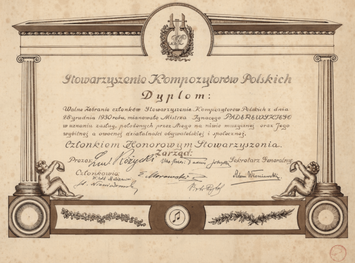 Stowarzyszenie Kompozytorów Polskich
Dyplom:
Walne Zebranie członków Stowarzyszenia Kompozytorów Polskich z dnia
28 grudnia 1930 roku, mianowało Mistrza Ignacego PADEREWSKIEGO
w uznaniu zasług, położonych przez Niego na niwie muzycznej, oraz Jego
wybitnej i owocnej działalności obywatelskiej i społecznej,
Członkiem Honorowym Stowarzyszenia.
Zarząd:
Prezes: Sekretarz Generalny
Członkowie: